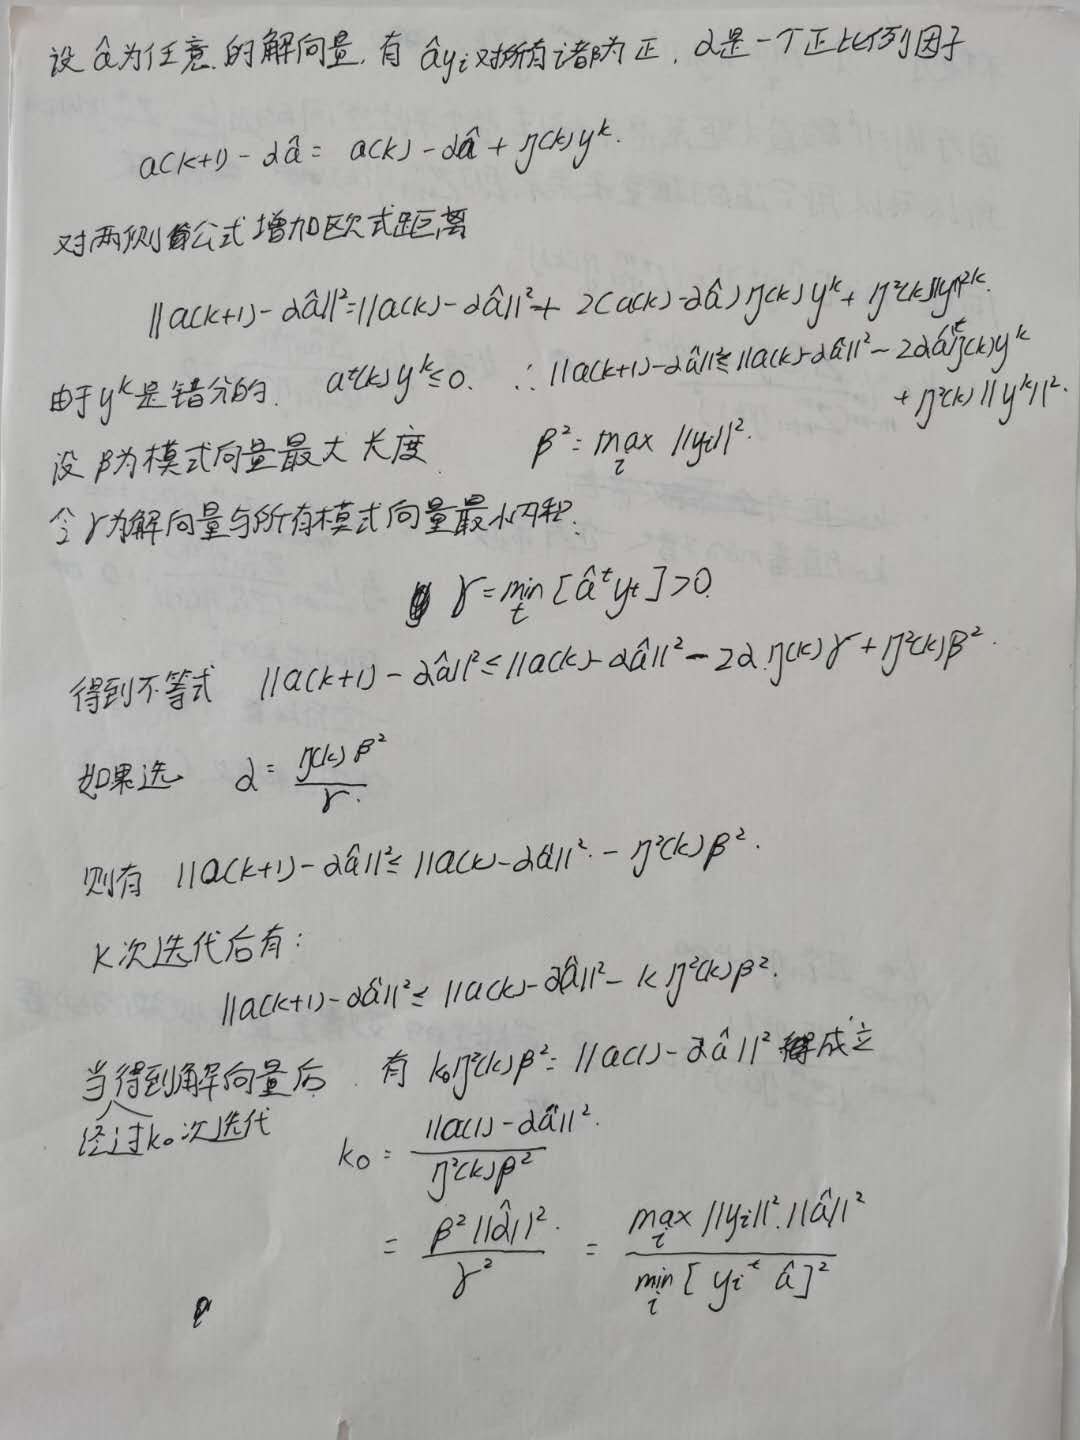 设 â为任意的解向量, 有 âyᵢ对所有i都为正. α是一个正比例因子
a(k+1) - αâ = a(k) - αâ + η(k)yᵏ.
对两侧公式增加欧式距离
||a(k+1) - αâ||² = ||a(k) - αâ||² + 2(a(k) - αâ)η(k)yᵏ + η²(k)||y||²ᵏ.
由于yᵏ是错分的. aᵗ(k)yᵏ ≤ 0. ∴ ||a(k+1) - αâ||² ≤ ||a(k) - αâ||² - 2αâᵗη(k)yᵏ
+ η²(k)||yᵏ||².
设β为模式向量最大长度. β² = max ||yᵢ||².
i
令γ为解向量与所有模式向量最小内积.
γ = min [âᵗyₜ] > 0.
t
得到不等式 ||a(k+1) - αâ||² ≤ ||a(k) - αâ||² - 2αη(k)γ + η²(k)β².
如果选 α = η(k)β² / γ.
则有 ||a(k+1) - αâ||² ≤ ||a(k) - αâ||² - η²(k)β².
K次迭代后有:
||a(k+1) - αâ||² ≤ ||a(k) - αâ||² - kη²(k)β².
当得到解向量后. 有 k₀η²(k)β² = ||a(1) - αâ||² 成立
经过k₀次迭代
k₀ = ||a(1) - αâ||² / η²(k)β²
= β²||α̂||² / γ² = max ||yᵢ||².||â||² / min [yᵢᵗ â]²
i
i